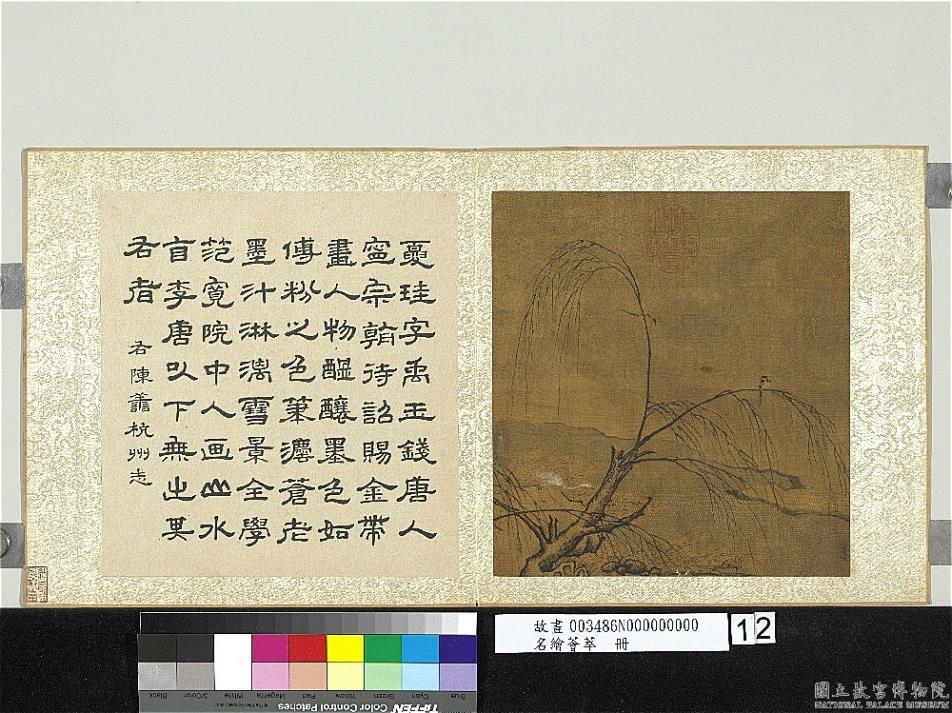 夏珪字禹玉錢唐人
寧宗朝待詔賜金帶
畫人物醞釀墨色如
傅粉之色筆灋蒼老
墨汁淋漓雪景全學
范寬院中人画山水
自李唐以下無出其
右者
右陳善杭州志
故畫 003486N000000000
名繪薈萃 冊
12
Black 3/Color White Magenta Red Yellow Green Cyan Blue
TIFFEN Color Control Patches
國立故宮博物院
NATIONAL PALACE MUSEUM